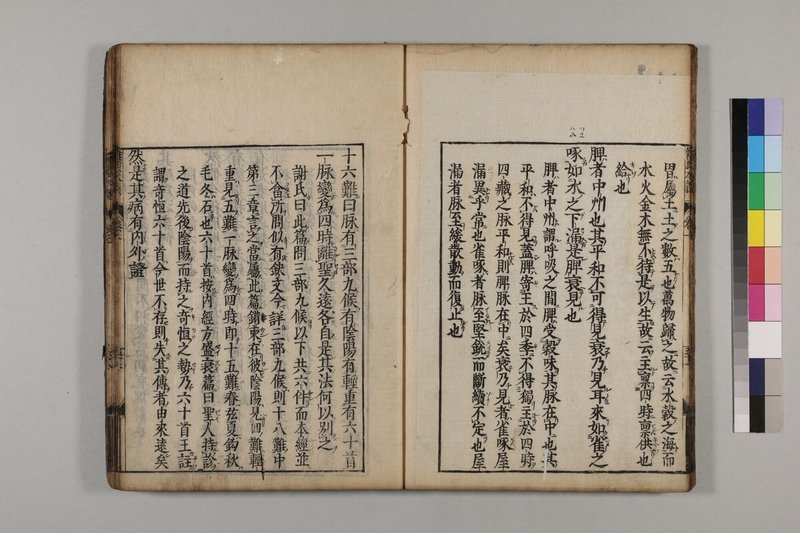 胃屬土土之數五也萬物歸之故云水穀之海而
水火金木無不待是以生故云主稟四時稟供也
給也
脾者中州也其平和不可得見衰乃見耳來如雀之
啄如水之下漏是脾衰見也
脾者中州謂呼吸之間脾受穀味其脉在中也其
平和不得見蓋脾寄王於四季不得獨主於四時
四藏之脉平和則脾脉在中矣衰乃見者雀啄屋
漏異乎常也雀啄者脉至堅銳而斷續不定也屋
漏者脉至緩散動而復止也
十六難曰脉有三部九候有陰陽有輕重有六十首
一脉變爲四時離聖久遠各自是其法何以別之
謝氏曰此篇問三部九候以下共六件而本經並
不答所問似有缺文今詳三部九候則十八難中
第三章言之當屬此篇錯柬在彼陰陽見四難輕
重見五難一脉變爲四時即十五難春弦夏鈎秋
毛冬石也六十首按內經方盛衰篇曰聖人持診
之道先後陰陽而持之奇恒之勢乃六十首王註
謂奇恒六十首今世不存則失其傳者由來遠矣
然是其病有內外證